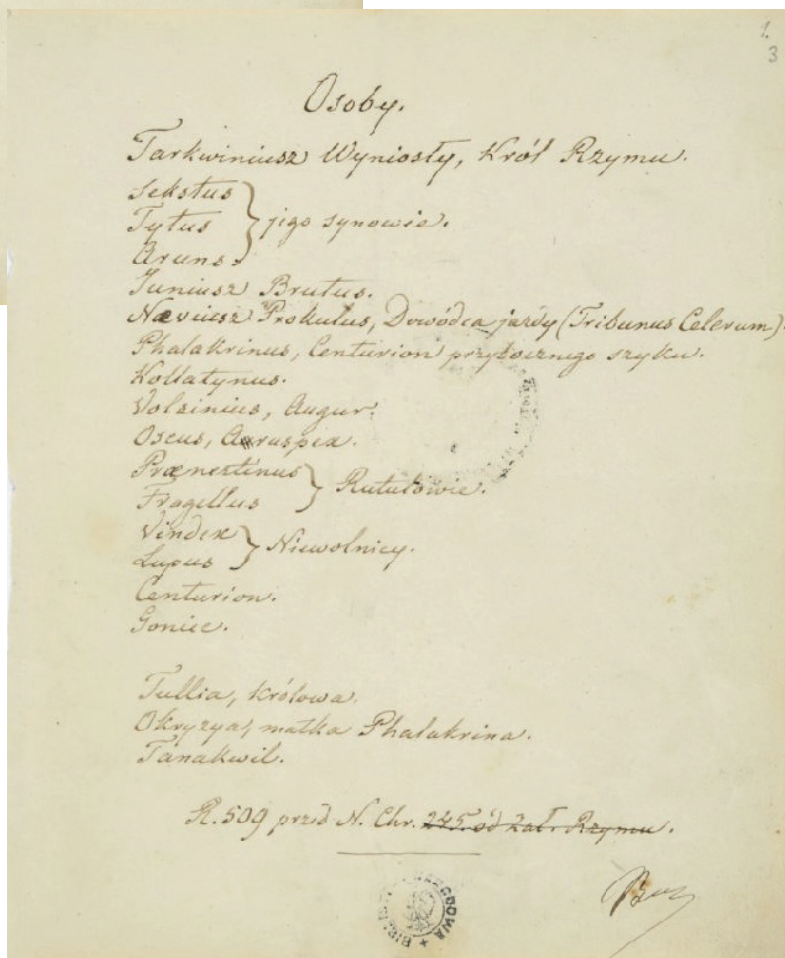 1.
3
Osoby.
Tarkwiniusz Wyniosły, Król Rzymu.
Sekstus
Tytus } jego synowie.
Aruns.
Juniusz Brutus.
Næviusz Prokulus, Dowódca jazdy (Tribunus Celerum).
Phalakrinus, Centurion przybocznego szyku.
Kollatynus.
Volsinius, Augur.
Oscus, Aruspex.
Prænestinus
Fragellus } Rutulowie.
Vindex
Lupus } Niewolnicy.
Centurion.
Goniec.
Tullia, królowa.
Okryzya, matka Phalakrina.
Tanakwil.
R. 509 przed N. Chr. 245. od zał. Rzymu.
BIBLIOTEKA NARODOWA